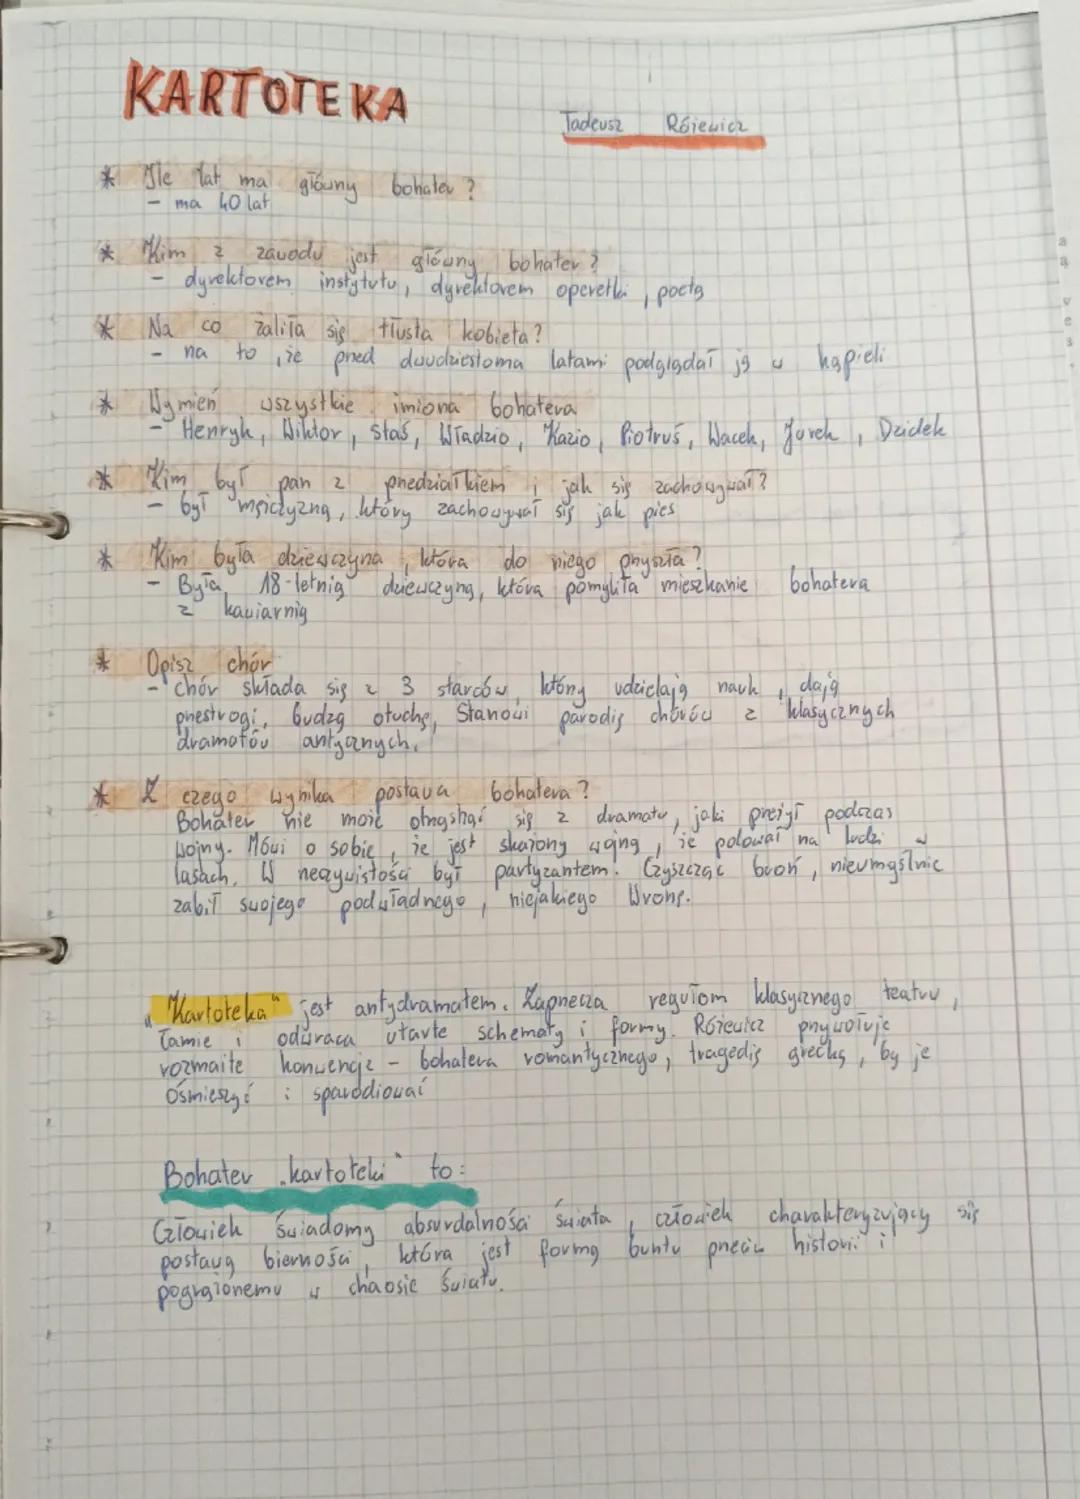 KARTOTEKA
Tadeusz Różewicz
* Ile lat ma główny bohater?
- ma 40 lat
* Kim z zawodu jest główny bohater?
- dyrektorem instytutu, dyrektorem operetki, poetą
* Na co żaliła się tłusta kobieta?
- na to, że przed dwudziestoma latami podglądał ją w kąpieli
* Wymień wszystkie imiona bohatera
- Henryk, Wiktor, Staś, Władzio, Kazio, Piotruś, Wacek, Jurek, Dzidek
* Kim był pan z przedziałkiem i jak się zachowywał?
- był mężczyzną, który zachowywał się jak pies
* Kim była dziewczyna, która do niego przyszła?
- Była 18-letnią dziewczyną, która pomyliła mieszkanie bohatera
z kawiarnią
* Opisz chór
- chór składa się z 3 starców, którzy udzielają nauk, dają
przestrogi, budzą otuchę, Stanowi parodię chórów z klasycznych
dramatów antycznych.
* Z czego wynika postawa bohatera?
Bohater nie może otrząsnąć się z dramatu, jaki przeżył podczas
wojny. Mówi o sobie, że jest skażony wojną, że polował na ludzi w
lasach. W rzeczywistości był partyzantem. Czyszcząc broń, nieumyślnie
zabił swojego podwładnego, niejakiego Wronę.
„Kartoteka" jest antydramatem. Zaprzecza regułom klasycznego teatru,
łamie i odwraca utarte schematy i formy. Różewicz przywołuje
rozmaite konwencje - bohatera romantycznego, tragedię grecką, by je
ośmieszyć i sparodiować
Bohater „kartoteki" to:
Człowiek świadomy absurdalności świata, człowiek charakteryzujący się
postawą bierności, która jest formą buntu przeciw historii i
pogrążonemu w chaosie światu.